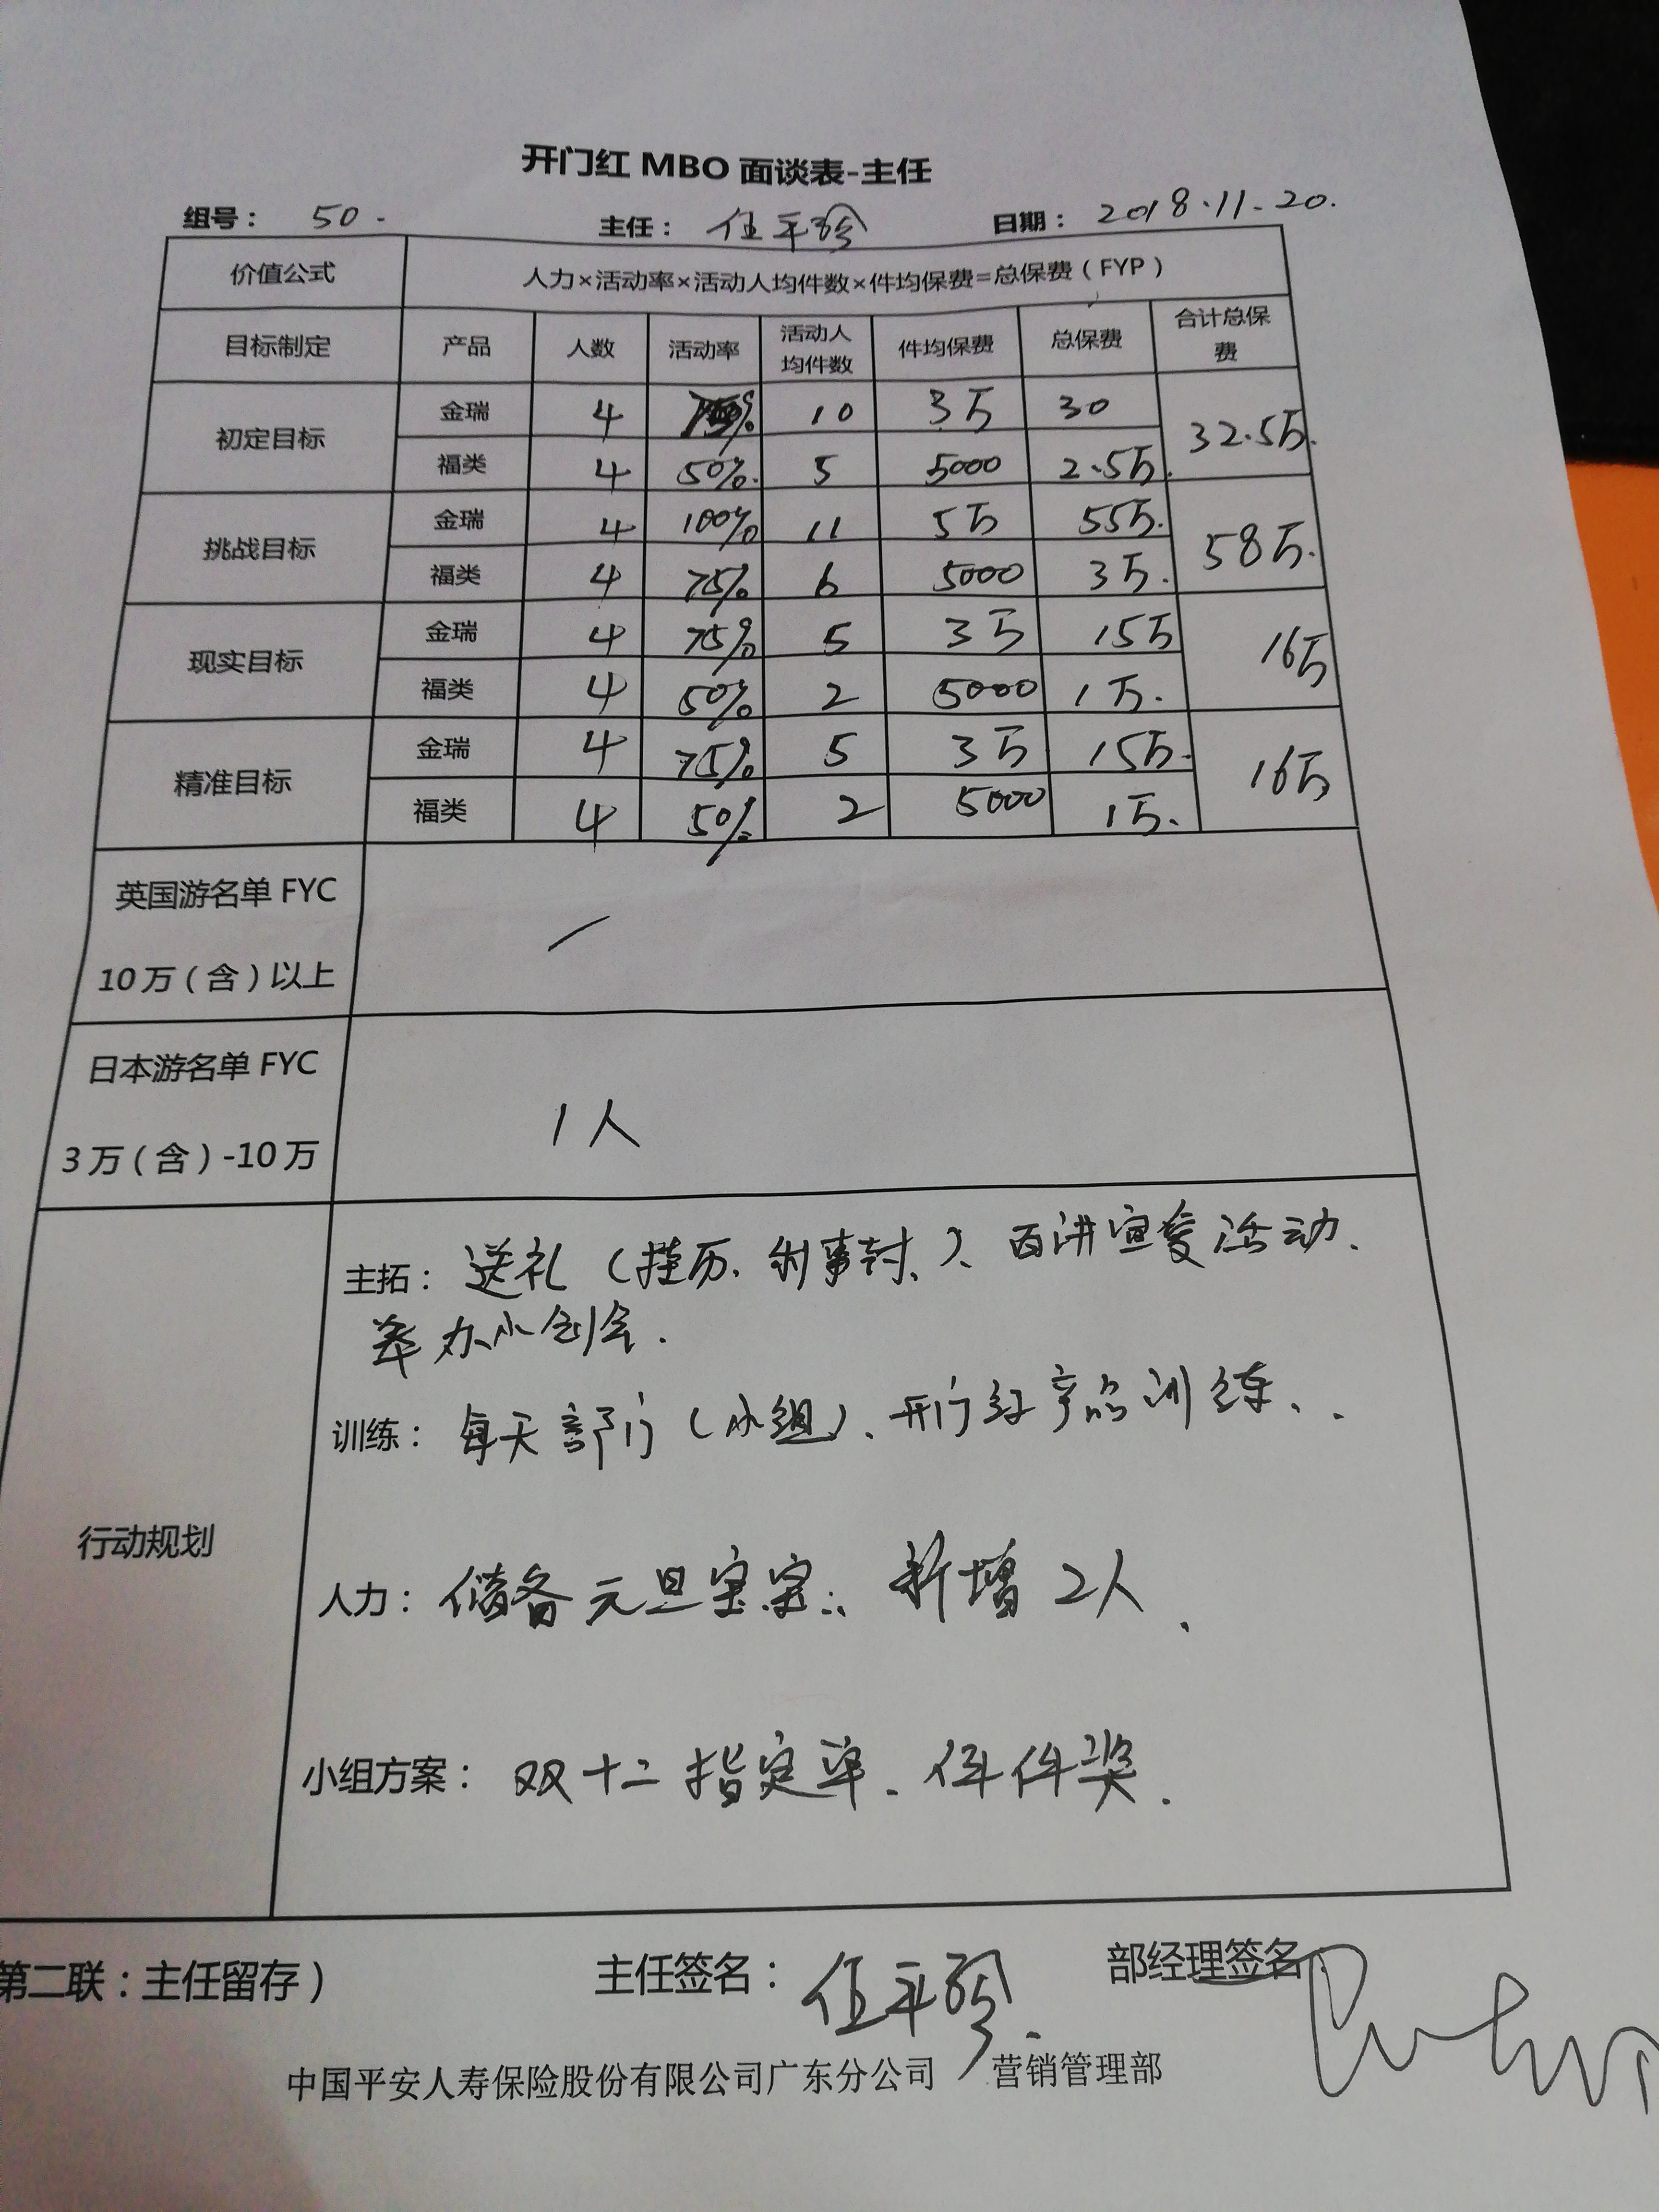 开门红 MBO 面谈表-主任
组号： 50. 主任： 伍平珍 日期： 2018.11.20.
价值公式 人力×活动率×活动人均件数×件均保费=总保费（FYP）
目标制定 产品 人数 活动率 活动人均件数 件均保费 总保费 合计总保费
初定目标 金瑞 4 10 3万 30 32.5万.
福类 4 50%. 5 5000 2.5万.
挑战目标 金瑞 4 100% 11 5万 55万. 58万.
福类 4 75% 6 5000 3万.
现实目标 金瑞 4 75% 5 3万 15万 16万
福类 4 50% 2 5000 1万.
精准目标 金瑞 4 75% 5 3万 15万. 16万
福类 4 50% 2 5000 1万.
英国游名单 FYC
10万（含）以上
日本游名单 FYC
3万（含）-10万
1人
行动规划
主拓： 送礼（挂历、）、活动、
举办小创会.
训练： 每天部门（小组）、开门红产品训练、.
人力： 储备元旦宝宝: 新增 2人、
小组方案： 双十二指定单、件件奖.
第二联：主任留存） 主任签名： 伍平珍. 部经理签名
中国平安人寿保险股份有限公司广东分公司 营销管理部